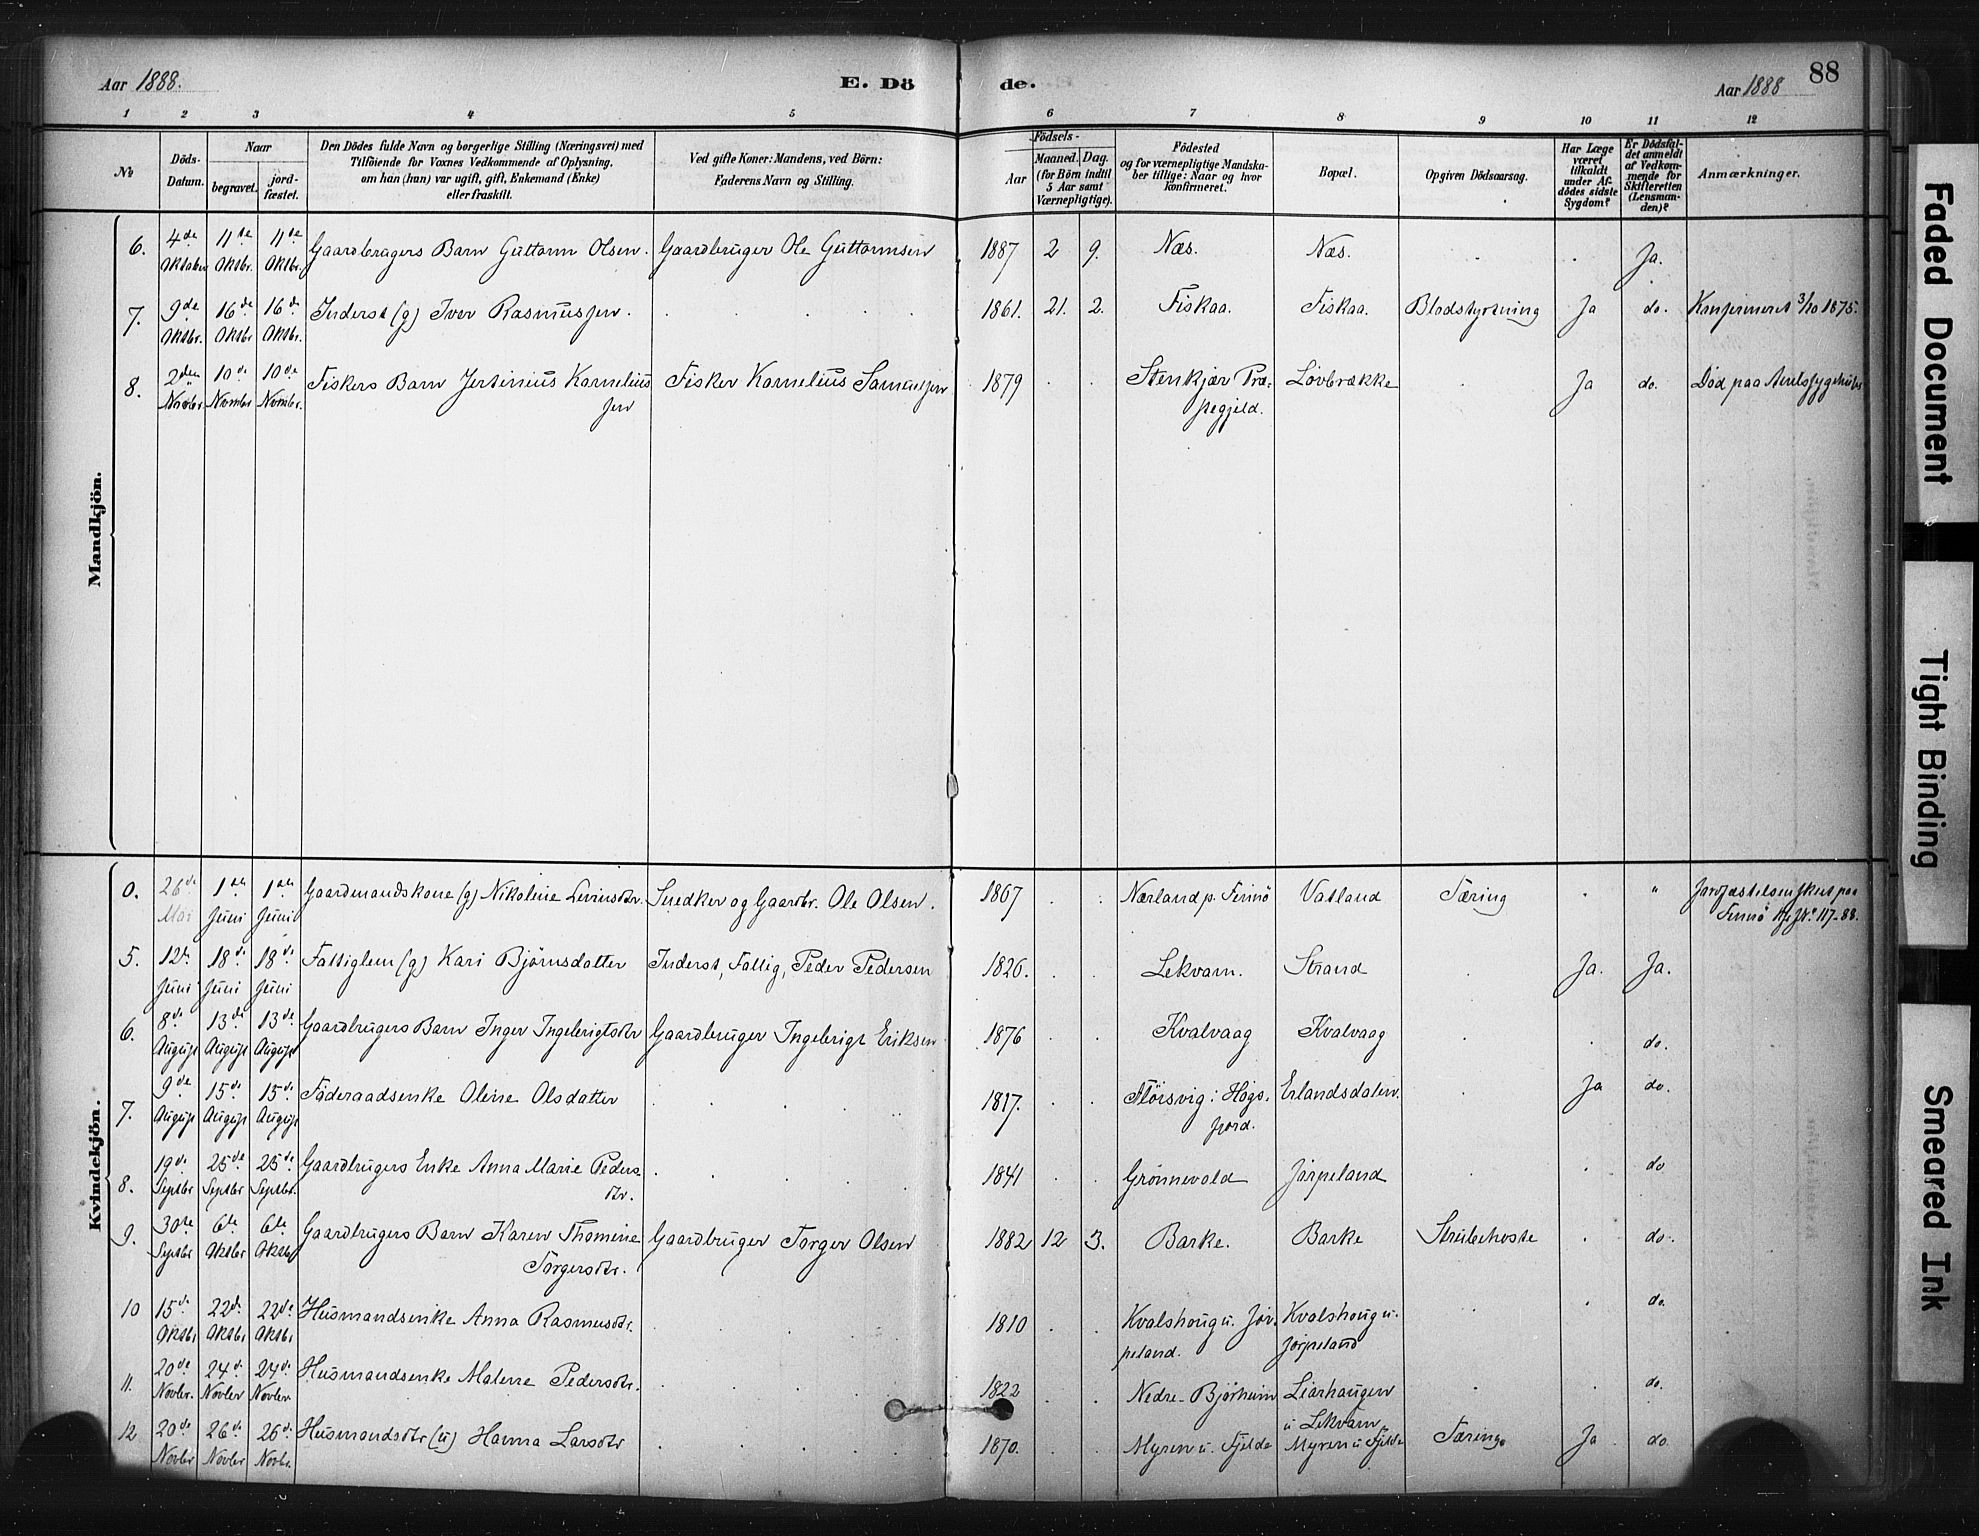 Aar 1888. E. Dö de. Aar 1888 88
1 2 3 4 5 6 7 8 9 10 11 12
No
Döds-
Datum.
Naar
begravet.
jord-
fæstet.
Den Dödes fulde Navn og borgerlige Stilling (Næringsvei) med
Tilföiende for Voxnes Vedkommende af Oplysning,
om han (hun) var ugift, gift, Enkemand (Enke)
eller fraskilt.
Ved gifte Koner: Mandens, ved Börn:
Faderens Navn og Stilling.
Födsels-
Aar
Maaned. Dag.
(for Börn indtil
5 Aar samt
Værnepligtige).
Födested
og for værnepligtige Mandska-
ber tillige: Naar og hvor
konfirmeret.
Bopæl.
Opgiven Dödsaarsag.
Har Læge
været
tilkaldt
under Af-
dödes sidste
Sygdom?
Er Dödsfal-
det anmeldt
af Vedkom-
mende for
Skifteretten
(Lensman-
den)?
Anmærkninger.
Mandkjön.
6. 4de Oktober 11te Oktbr. 11te Oktbr. Gaardbrugers Barn Guttorm Olsen. Gaardbruger Ole Guttormsen 1887 2 9. Næs. Næs. Ja.
7. 9de Oktbr. 16de Oktbr. 16de Oktbr. Inderst (g) Iver Rasmussen. 1861. 21. 2. Fiskaa. Fiskaa. Blodstyrtning Ja do. Konfirmeret 3/10 1875.
8. 2den Novbr. 10de Novmbr. 10de Novmbr. Fiskers Barn Jertinius Kornelius
sen Fisker Kornelius Samuelsen 1879 Stenkjær Præ-
stegjeld. Lövbrække Ja do. Död paa Amtssygehuset
Kvindekjön.
0. 26de Mai 1ste Juni 1ste Juni Gaardmandskone (g) Nikoline Sevrinsdtr. Snedker og Gaardbr. Ole Olsen. 1867 Nærland p. Finnö Vatland Tæring " Jordfæstelsen skut paa
Finnö 117-88.
5. 12te Juni 18de Juni 18de Juni Fattiglem (g) Kari Björnsdatter Inderst, Fattig, Peder Pedersen 1826. Lekvam. Strand Ja. Ja.
6. 8de August 13de August 13de August Gaardbrugers Barn Inger Ingebrigtsdtr Gaardbruger Ingebrigt Eriksen 1876 Kvalvaag Kvalvaag do.
7. 9de August 15de August 15de August Föderaadsenke Oline Olsdatter 1817. Flörsvig i Högs-
fjord. Erlandsdalen. Ja do.
8. 19de Septbr 25de Septbr 25de Septbr. Gaardbrugers Enke Anna Marie Peders-
dtr. 1841 Grönnevold Jörpeland do
9. 30te Septbr 6te Oktbr 6te Oktbr Gaardbrugers Barn Karen Thomine
Torgersdtr. Gaardbruger Torger Olsen 1882 12 3. Barke. Barke Strubehoste do.
10 15de Oktbr 22de Oktbr 22de Oktbr Husmandsenke Anna Rasmusdtr. 1810 Kvalshoug u. Jör-
peland. Kvalshoug u.
Jörpeland do.
11. 20de Novbr. 24de Novbr 24de Novbr Husmandsenke Malene Pedersdtr. 1822 Nedre-Björheim Liarhaugen
u Lekvam do.
12 20de Novbr 26de Novbr 26de Novbr. Husmandsdtr (u) Hanna Larsdtr 1870. Myren u. Fjelde Myren u Fjelde Tæring. Ja do.
Faded Document
Tight Binding
Smeared Ink